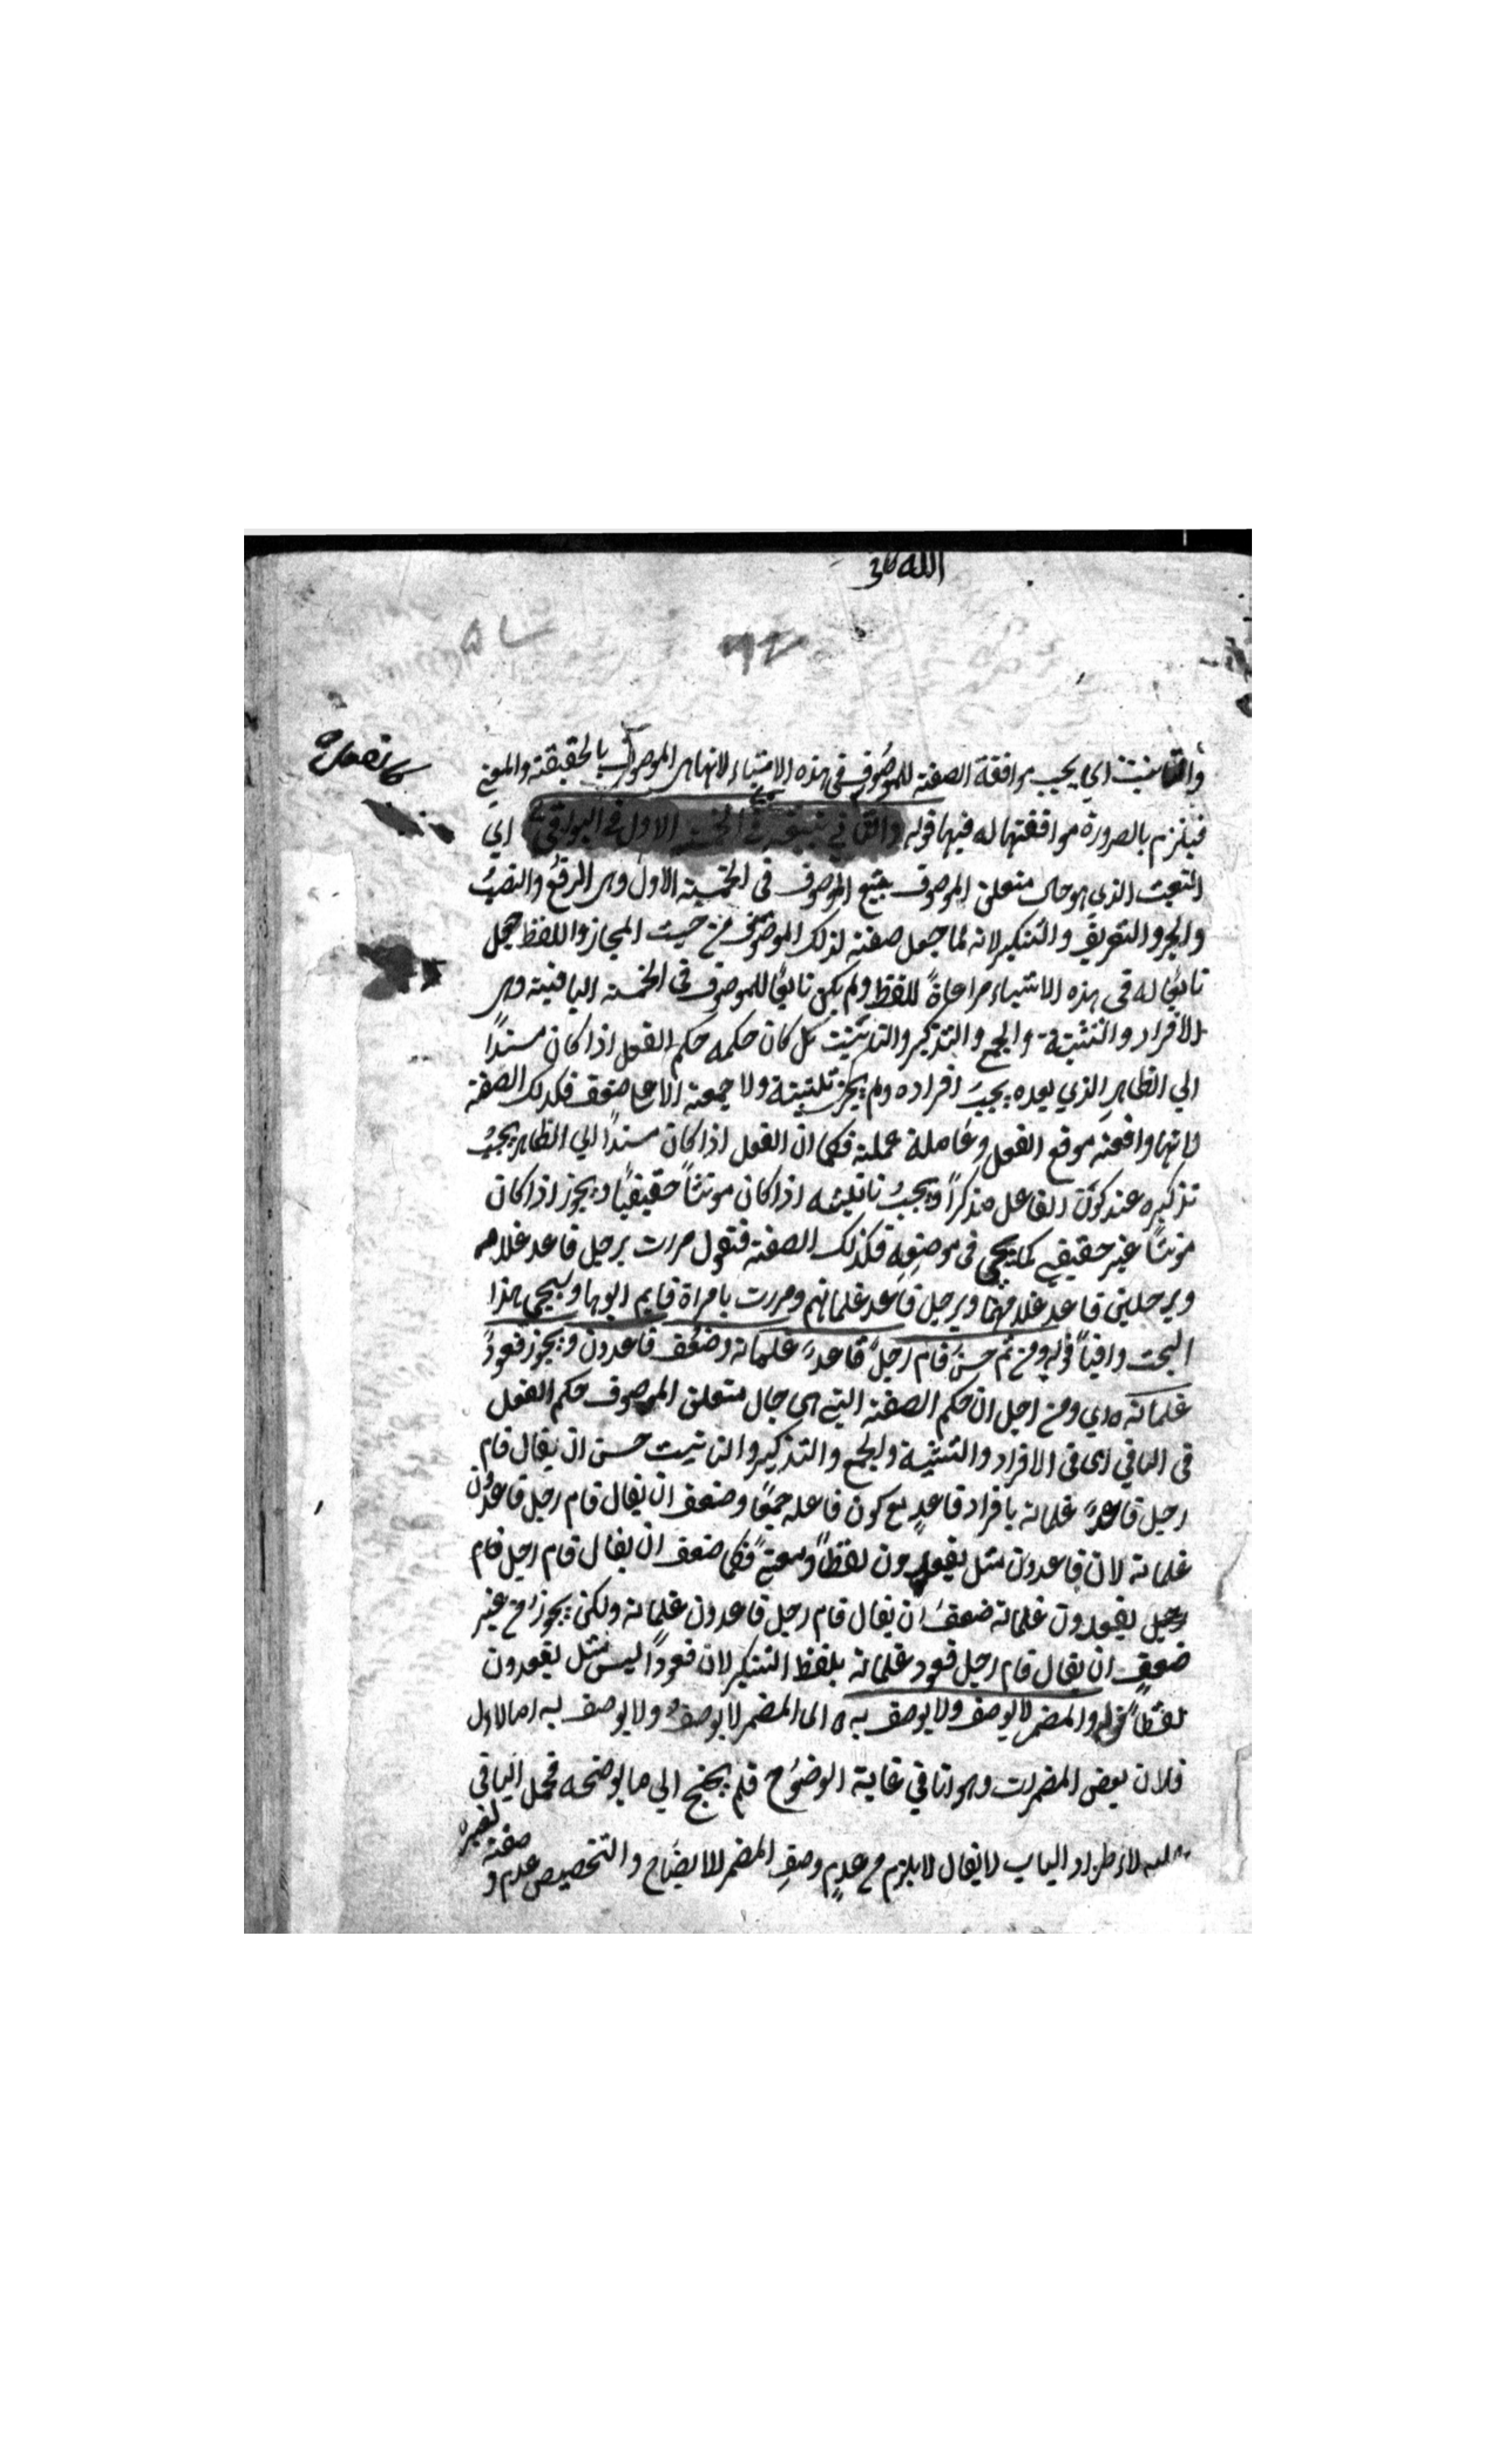 الله
والتانيث اي يجب موافقة الصفة للموصوف في هذه الاشياء لانها هي الموصوف بالحقيقة والمعني
فيلزم بالضرورة موافقتها له فيها قوله والثاني يتبعه في الخمسة الاول وفي البواقي اي
النعت الذي هو حال متعلق الموصوف يتبع الموصوف في الخمسة الاول وهي الرفعُ والنصبُ
والجر والتعريف والتنكير لانه لما جعل صفة لذلك الموصوف من حيث المجاز واللفظ جعل
تابعًا له في هذه الاشياء مراعاةً للفظ ولم يكن تابعًا للموصوف في الخمسة الباقية وهي
الافراد والتثنية والجمع والتذكير والتانيث بل كان حكمه حكم الفعل اذا كان مسندًا
الي الظاهرِ الذي بعده يجبُ افراده ولم يجز تثنيته ولا جمعه الا علي ضعف فكذلك الصفة
لانها واقعة موقع الفعل وعاملة عمله فكما ان الفعل اذا كان مسندًا الي الظاهر يجبُ
تذكيره عند كون الفاعل مذكرًا ويجبُ تانيثه اذا كان مونثًا حقيقيًا ويجوز اذا كان
مونثًا غير حقيقي كما يجي في موضعه فكذلك الصفة فتقول مررت برجل قاعد غلامه
وبرجلين قاعد غلامهما وبرجل قاعد غلمانهم ومررت بامراة قايم ابوها وسيجي هذا
البحث وافيًا قوله ومن ثم حسن قام رجلٌ قاعدٌ غلمانه وضعف قاعدون ويجوز قعودٌ
غلمانه اي ومن اجل ان حكم الصفة التي هي حال متعلق الموصوف حكم الفعل
في الباقي اي في الافراد والتثنية والجمع والتذكير والتانيث حسن ان يقال قام
رجل قاعدٌ غلمانه بافراد قاعدٍ مع كون فاعله جمعًا وضعف ان يقال قام رجل قاعدون
غلمانه لان قاعدون مثل يقعدون لفظًا ومعنيً فكما ضعف ان يقال قام رجل قام
رجل يقعدون غلمانه ضعفَ ان يقال قام رجل قاعدون غلمانه ولكن يجوز من غير
ضعفٍ ان يقال قام رجل قعود غلمانه بلفظ التنكير لان قعودًا ليس مثل يقعدون
لفظًا قوله والمضمر لا يوصف ولا يوصف به اي المضمر لا يوصفُ ولا يوصف به اما الاول
فلان بعض المضمرات وهو انا في غاية الوضوح فلم يحتج الي ما يوضحه فحمل الباقي
عليه لاطراد الباب لا يقال لا يلزم من عدم وصفِ المضمر للايضاح والتخصيص عدم و
صفه لغيره